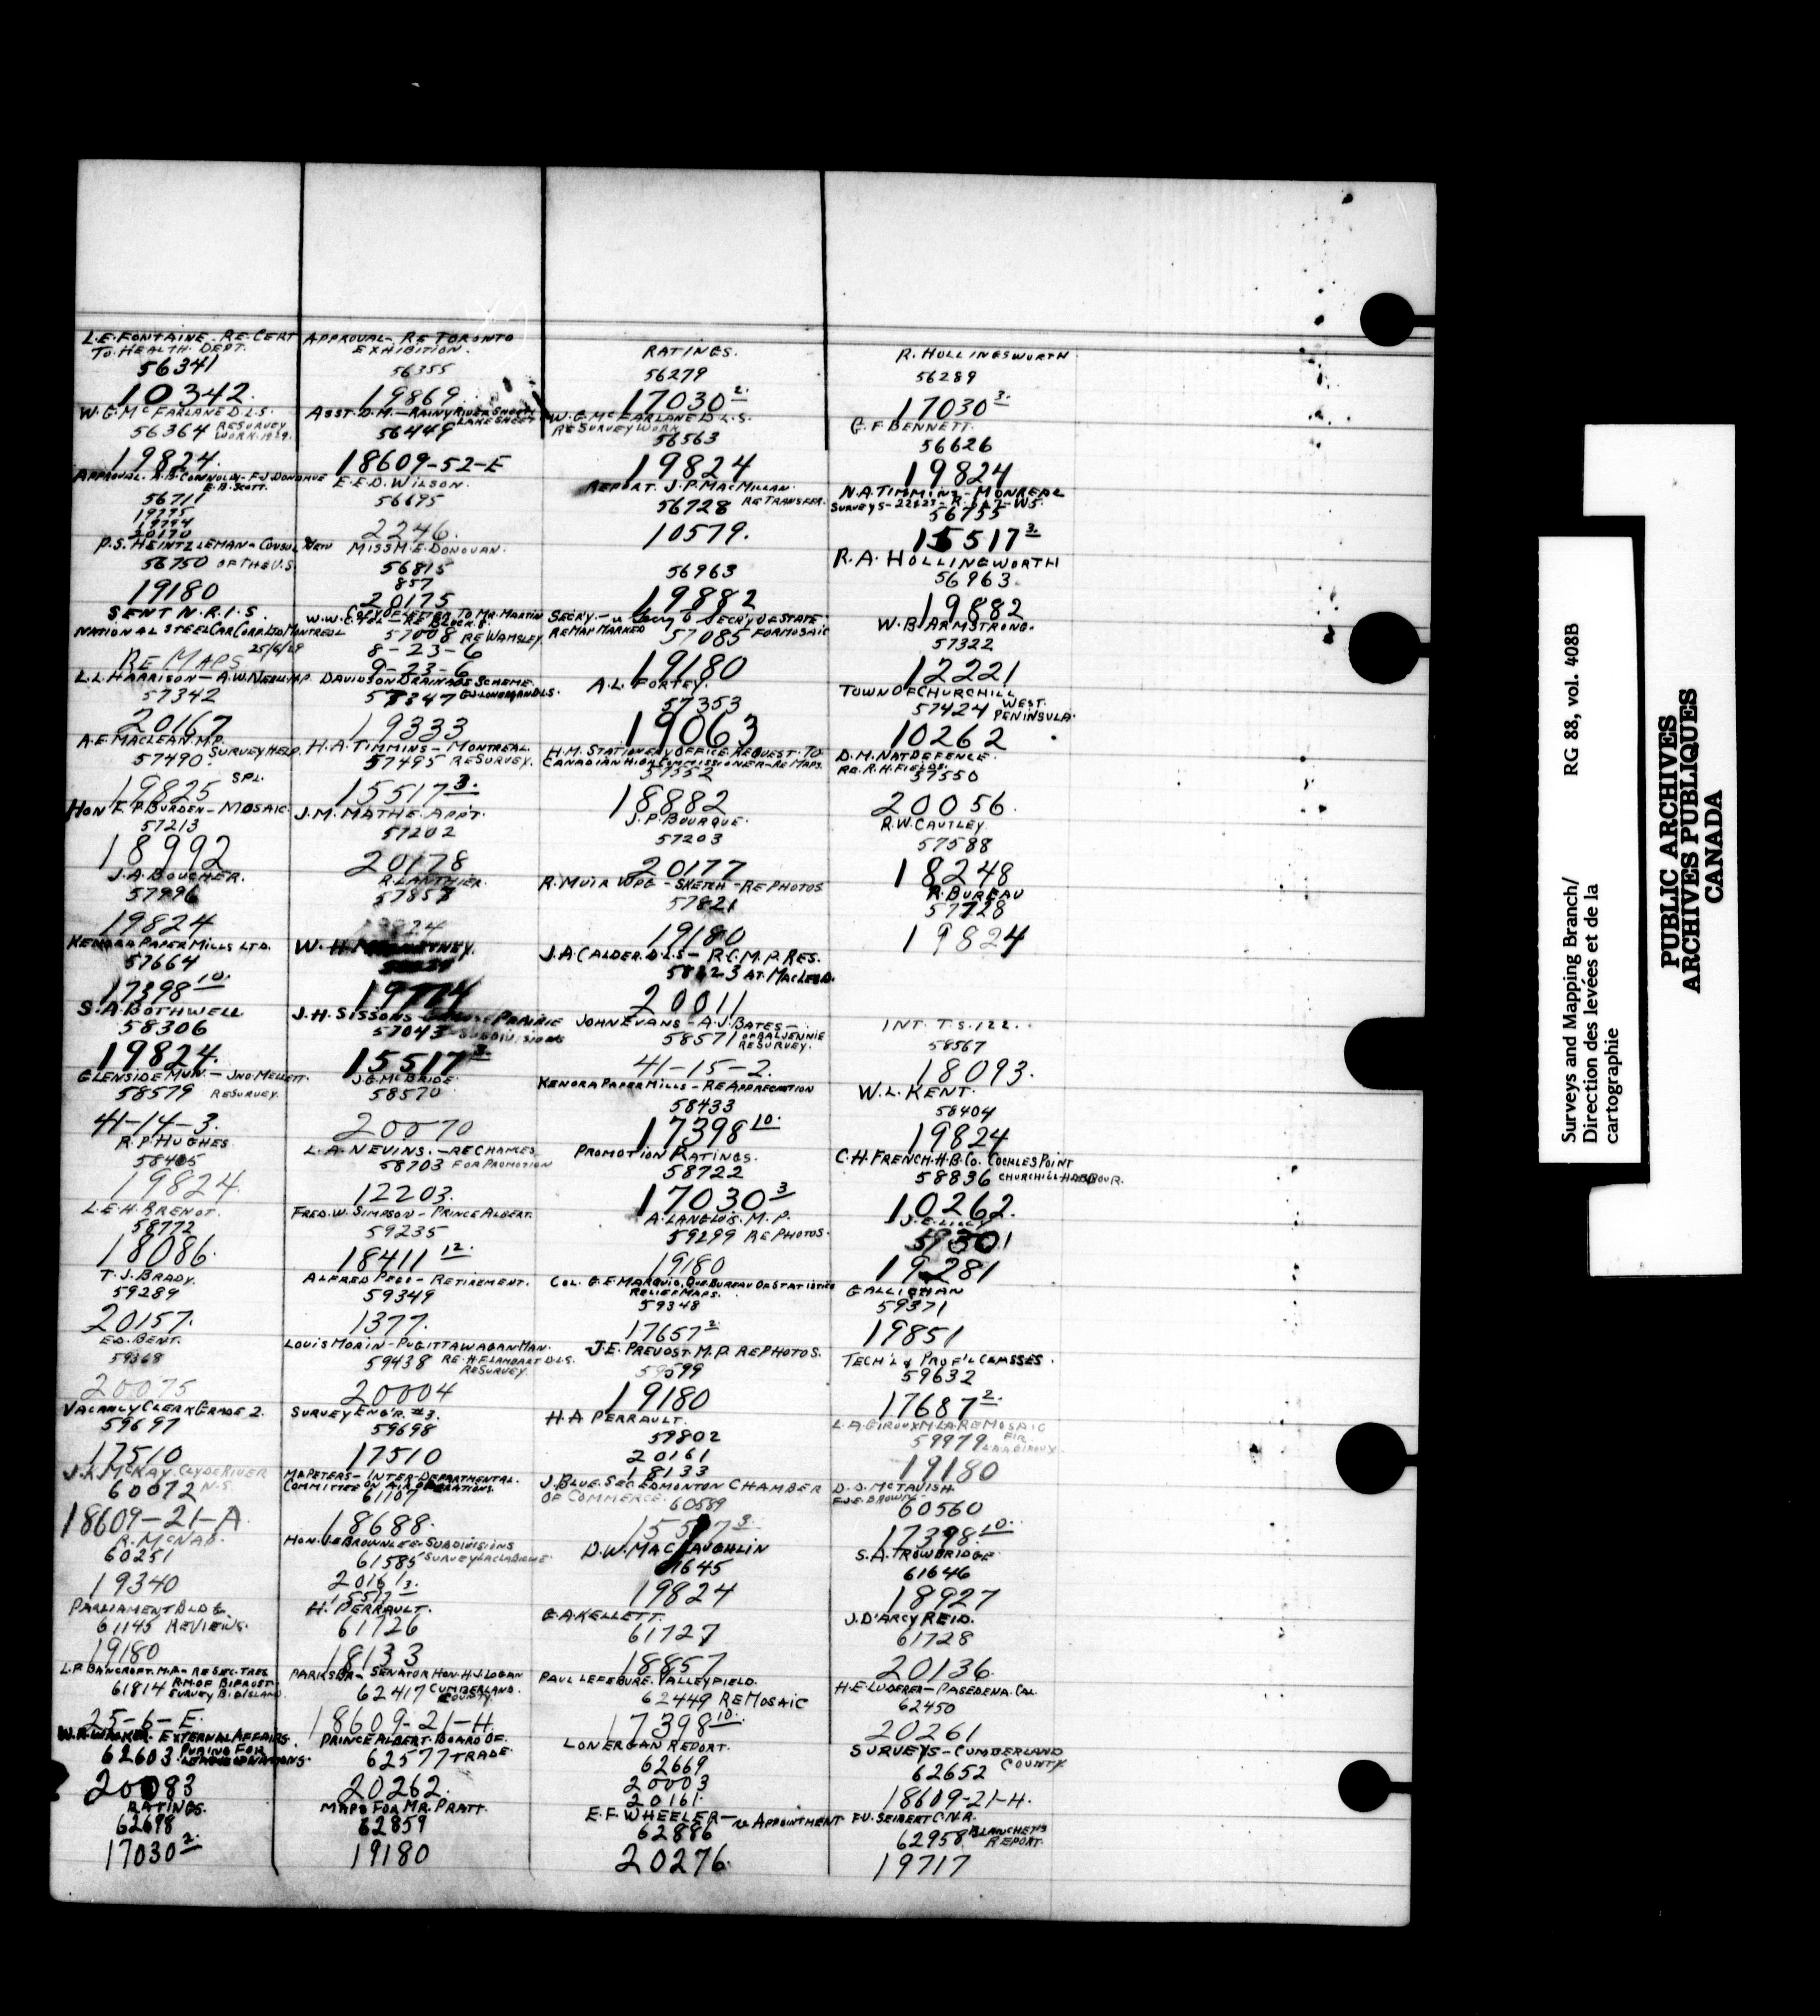 L.E. FONTAINE - RE. CERT
TO. HEALTH. DEPT.
56341
10342.
W.G. McFARLANE D.L.S.
56364 RESURVEY
WORK. 1929.
19824.
APPROVAL. A.B. CONNOLIN - F.J. DONAHUE
E.B. SCOTT.
56711
19775
19794
20170
P.S. HEINTZLEMAN - CONSUL
56750 OF THE U.S.
19180
SENT N.R.I.S.
NATIONAL STEEL CAR CORP. LTD. MONTREAL
RE MAPS 25/6/29
L.L. HARRISON - A.W. NEILL M.P.
57342
20167
A.E. MACLEAN. M.P.
57490 SURVEY HELP.
19825 SPL.
HON F.P. BURDEN - MOSAIC.
57213
18992
J.A. BOUCHER.
57996
19824
KENORA PAPER MILLS LTD.
57664
17398 10.
S.A. BOTHWELL
58306
19824.
GLENSIDE MUN. - JNO. MELLETT.
58579 RESURVEY.
41-14-3.
R.P. HUGHES.
58405
19824.
L.E.H. BRENOT.
58772
18086.
T.J. BRADY.
59289
20157.
ED. BENT.
59368
20075
VACANCY CLERK GRADE 2.
59697
17510
J.K. McKAY. CLYDE RIVER
60072 N.S.
18609-21-A.
R. McNAB.
60251
19340
PARLIAMENT BLDG.
61145 RE VIEWS.
19180
L.P. BANCROFT. M.A. - RE SEC. TRES
61814 R.M. OF BIFROST
SURVEY B. ISLAND
25-6-E.
W.R. WALKER. EXTERNAL AFFAIRS.
62603 FOR
LEAGUE OF NATIONS.
20083
RATINGS.
62698
17030 2.
APPROVAL - RE TORONTO
EXHIBITION.
56355
19869.
ASST. D.M. - RAINY RIVER SHEET
LAKE SHEET
56449
18609-52-E
E.E.D. WILSON.
56695
2246.
MISS M.E. DONOVAN.
56815
857
20175
COPY OF LETTER TO MR. MARTIN
57008 RE WAMSLEY.
8-23-6
9-23-6
DAVIDSON DRAINAGE SCHEME.
57347 G.J. LONERGAN D.L.S.
19333
H.A. TIMMINS - MONTREAL.
57495 RESURVEY.
15517 3.
J.M. MATHE. APPT.
57202
20178
R. LANTHIER.
57857
19824
W. H.
19774
J.H. SISSONS - GRANDE PRAIRIE
57043 SUBDIVISIONS
15517 3.
J.G. McBRIDE.
58570
20070
L.A. NEVINS. - RE CHANCES
58703 FOR PROMOTION
12203.
FRED. W. SIMPSON - PRINCE ALBERT.
59235
18411 12.
ALFRED PEGG - RETIREMENT.
59349
1377.
LOUIS MORIN - PUGITTAWAGAN MAN.
59438 RE. H.F. LAMBART D.L.S.
RESURVEY.
20004
SURVEY ENG'R. #3.
59698
17510
MR PETERS - INTER-DEPARTMENTAL.
COMMITTEE ON AIR OPERATIONS.
61107
18688.
HON. J.E. BROWNLEE - SUBDIVISIONS
61585 SURVEY LAC LA BICHE
20161
15517 3.
H. PERRAULT.
61726
18133
PARKS BR - SENATOR HON. H.J. LOGAN
62417 CUMBERLAND.
COUNTY.
18609-21-H.
PRINCE ALBERT. BOARD OF.
62577 TRADE.
20262.
MAPS FOR MR. PRATT.
62859
19180
RATINGS.
56279
17030 2.
W.G. McFARLANE D.L.S.
RE SURVEY WORK
56563
19824
REPORT. J.P. MACMILLAN.
56728 RE TRANSFER.
10579.
56963
19882
SEC'RY OF STATE.
RE MAP MARKED 57085 FOR MOSAIC
19180
A.L. FORTEY.
57353
19063
H.M. STATIONERY OFFICE. REQUEST. TO.
CANADIAN HIGH COMMISSIONER - RE MAPS.
57552
18882
J.P. BOURQUE.
57203
20177
R. MUIR WPG - SKETCH - RE PHOTOS
57821
19180
J.A. CALDER. D.L.S - R.C.M.P. RES.
58123 AT. MACLEOD.
20011
JOHN EVANS - A.J. BATES -
58571
RESURVEY.
41-15-2.
KENORA PAPER MILLS - RE APPRECIATION
58433
17398 10.
PROMOTION RATINGS.
58722
17030 3
A. LANGLOIS. M.P.
59299 RE PHOTOS.
19180
COL. G.E. MARQUIS. QUE. BUREAU OF STATISTICS
RELIEF MAPS.
59348
17657 2.
J.E. PREVOST. M.P. RE PHOTOS.
59599
19180
H.A. PERRAULT.
59802
20161
18133
J. BLUE. SEC. EDMONTON CHAMBER
OF COMMERCE. 60589
15517 3.
D.W. MACLAUGHLIN
61645
19824
G.A. KELLETT.
61727
18857
PAUL LEFEBURE. VALLEYFIELD.
62449 RE MOSAIC
17398 10.
LONERGAN REPORT.
62669
20003
20161.
E.F. WHEELER - re APPOINTMENT
62886
20276.
R. HOLLINGSWORTH
56289
17030 3.
G.F. BENNETT.
56626
19824
N.A. TIMMINS - MONREAL
56755
15517 3.
R.A. HOLLINGWORTH
56963.
19882
W.B. ARMSTRONG.
57322
12221
TOWN OF CHURCHILL
57424 WEST.
PENINSULA.
10262
D.M. NAT DEFENCE.
RE. R.H. FIELDS.
57550
20056.
R.W. CAUTLEY.
57588
18248
R. BUREAU
57728
19824
INT. T.S. 122.
58567
18093.
W.L. KENT.
58404
19824
C.H. FRENCH. H.B. CO. COCKLES POINT
58836 CHURCHILL HARBOUR.
10262.
J.E. LILLY
59301
19281
GALLIGHAN
59371
19851
TECH'L & PROF'L CLASSES.
59632
17687 2.
L.A. GIROUX M.L.A. RE MOSAIC
59979
19180
D.D. McTAVISH.
60560
17398 10.
S.A. TROWBRIDGE
61646
18927
J. D'ARCY REID.
61728
20136.
H.E. LUDERER - PASEDENA. CAL.
62450
20261
SURVEYS - CUMBERLAND
62652 COUNTY
18609-21-H.
F.V. SEIBERT C.N.R.
62958 BLANCHET'S
REPORT.
19717
Surveys and Mapping Branch/ RG 88, vol. 408B
Direction des levées et de la
cartographie
PUBLIC ARCHIVES
ARCHIVES PUBLIQUES
CANADA